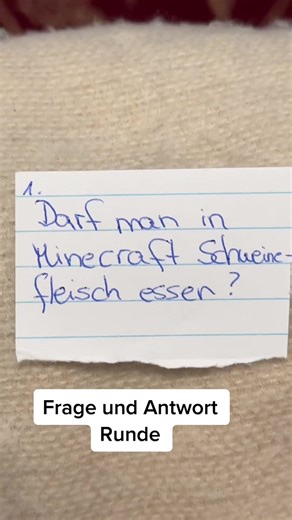 1.
Darf man in
Minecraft Schweine-
fleisch essen?
Frage und Antwort
Runde